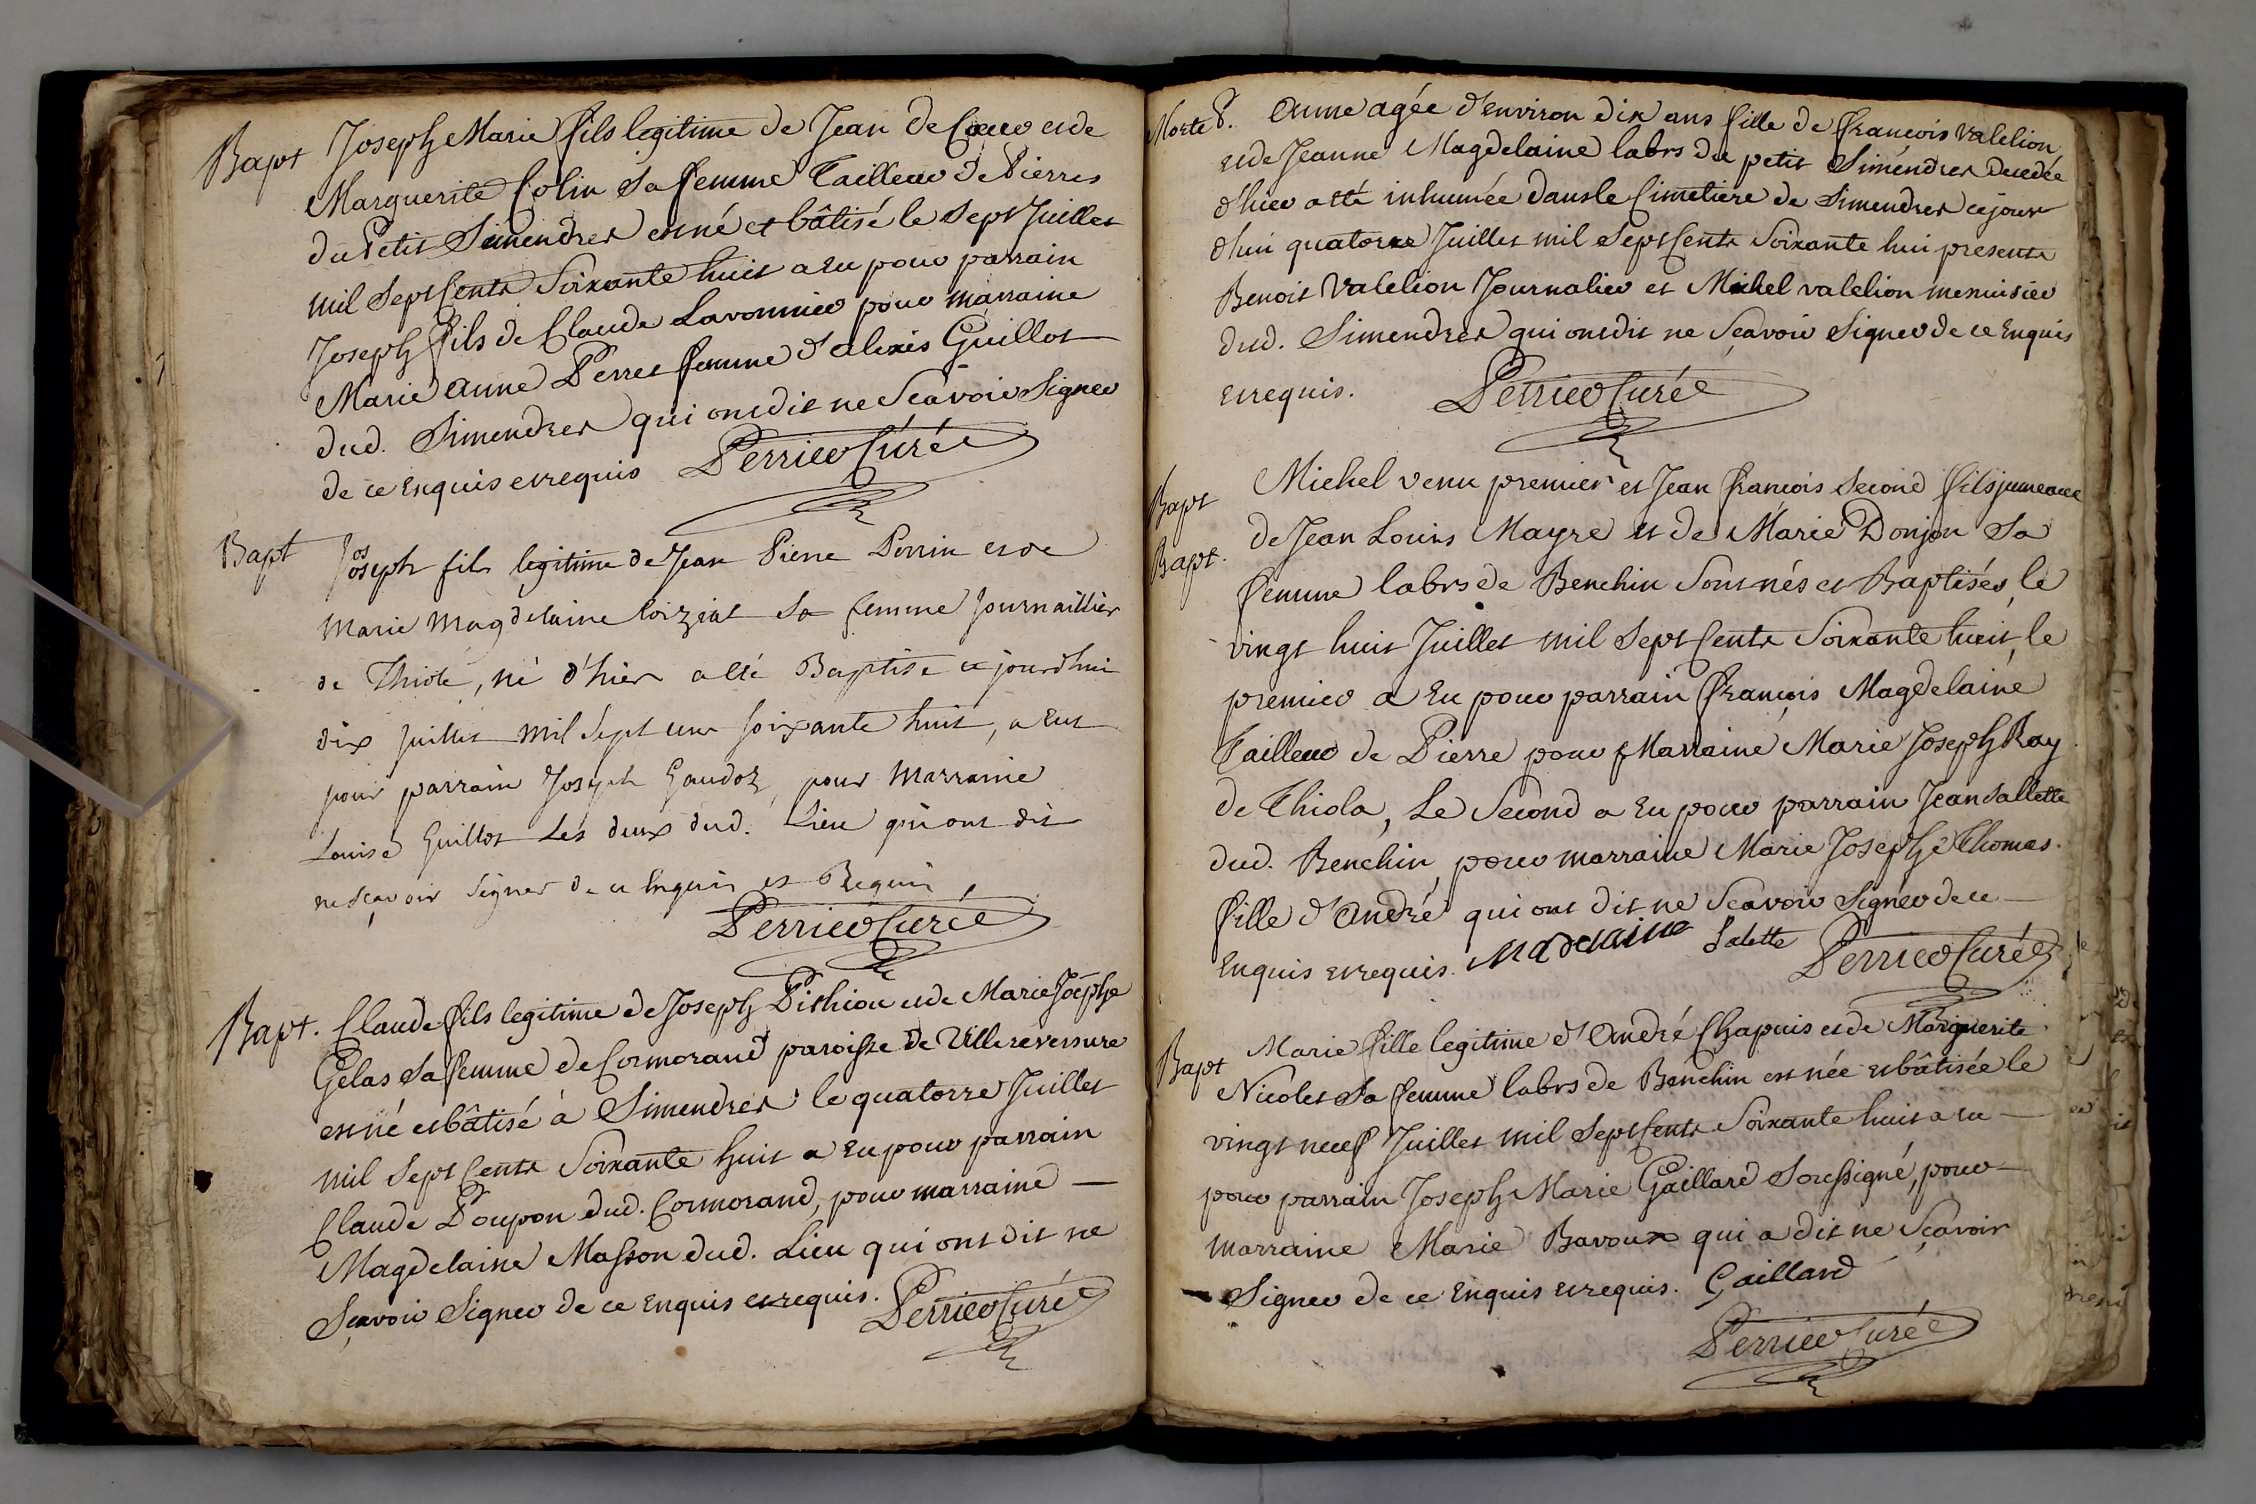 Bapt Joseph Marie fils legitime de Jean De Coeur et de
Marguerite Colin sa femme Tailleur de Pierres
du Petit Simendres est né et bâtisé le sept Juillet
mil sept Cents soixante huit a eu pour parrain
Joseph fils de Claude Lavonnier pour marraine
Marie anne Perret femme d'alexis Guillot
dud. Simendres qui ont dit ne Scavoir Signer
de ce Enquis et requis Perrier Curé
Bapt Joseph fils legitime de Jean Pierre Perrin et de
Marie Magdelaine Loiziat sa femme Journaillier
de Thiole, né d'hier a été Baptise ce jourdhui
dix Juillet mil Sept cent soixante huit, a eut
pour parrain Joseph Gaudoz, pour Marraine
Louise Guillot Les deux dud. Lieu qui ont dit
ne sçavoir Signer de ce Enquis et Requis
Perrier Curé
Bapt. Claude fils legitime de Joseph Pithiou et de Marie Josephe
Gelas sa femme de Cormorand paroisse de Villereversure
est né et bâtisé à Simendres le quatorze Juillet
mil sept Cents Soixante huit a eu pour parrain
Claude Poupon dud. Cormorand, pour marraine
Magdelaine Masson dud. Lieu qui ont dit ne
Sçavoir Signer de ce enquis et requis. Perrier Curé
Morte Anne agée d'environ dix ans fille de françois Valelion
et de Jeanne Magdelaine labrs du petit Simendres decedée
d'hier a été inhumée dans le Cimetiere de Simendres ce jour
d'hui quatorze Juillet mil Sept Cents Soixante hui presents
Benoit Valelion Journalier et Michel valelion menuisier
dud. Simendres qui ont dit ne Sçavoir Signer de ce Enquis
et requis. Perrier Curé
Bapt Michel venu premier et Jean françois second fils jumeaux
Bapt. de Jean Louis Mayre et de Marie Donjon Sa
femme labrs de Benchin Sont nés et Baptisés le
vingt huit Juillet mil Sept Cents Soixante huit, le
premier a Eu pour parrain françois Magdelaine
Tailleur de Pierre pour Marraine Marie Joseph Ray
de Thiola, Le Second a Eu pour parrain Jean Sallette
dud. Benchin, pour marraine Marie Josephe Thomas
fille d'André qui ont dit ne Scavoir Signer de ce
Enquis et requis. Madelaine Salette Perrier Curé
Bapt Marie fille legitime d'André Chapuis et de Marguerite
Nicolet sa femme labrs de Benchin est née et bâtisée le
vingt neuf Juillet mil Sept Cents Soixante huit a eu
pour parrain Joseph Marie Gaillard Soussigné, pour
marraine Marie Bavoux qui a dit ne Sçavoir
Signer de ce Enquis et requis. Gaillard
Perrier Curé